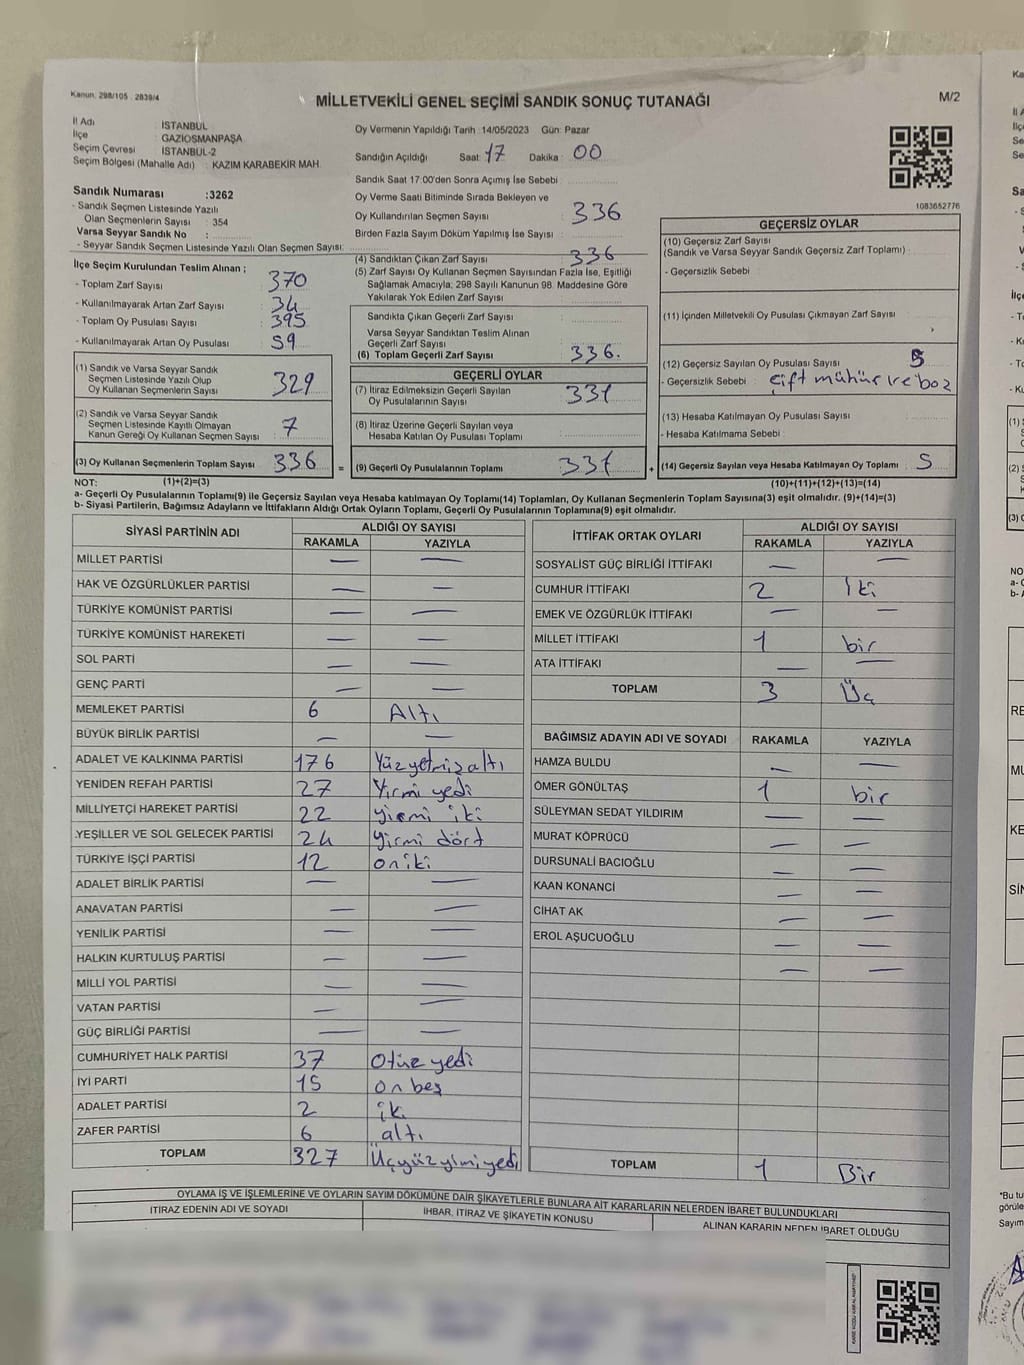 Kanun. 298/105 . 2839/4
MİLLETVEKİLİ GENEL SEÇİMİ SANDIK SONUÇ TUTANAĞI
M/2
İl Adı : İSTANBUL
İlçe : GAZİOSMANPAŞA
Seçim Çevresi : İSTANBUL-2
Seçim Bölgesi (Mahalle Adı) : KAZIM KARABEKİR MAH.
Sandık Numarası :3262
- Sandık Seçmen Listesinde Yazılı
Olan Seçmenlerin Sayısı : 354
Varsa Seyyar Sandık No :
- Seyyar Sandık Seçmen Listesinde Yazılı Olan Seçmen Sayısı:
Oy Vermenin Yapıldığı Tarih : 14/05/2023 Gün: Pazar
Sandığın Açıldığı Saat: 17 Dakika : 00
Sandık Saat 17:00'den Sonra Açımış İse Sebebi :
Oy Verme Saati Bitiminde Sırada Bekleyen ve
Oy Kullandırılan Seçmen Sayısı : 336
Birden Fazla Sayım Döküm Yapılmış İse Sayısı :
1083652776
İlçe Seçim Kurulundan Teslim Alınan ;
- Toplam Zarf Sayısı : 370
- Kullanılmayarak Artan Zarf Sayısı : 34
- Toplam Oy Pusulası Sayısı : 395
- Kullanılmayarak Artan Oy Pusulası : 59
(1) Sandık ve Varsa Seyyar Sandık
Seçmen Listesinde Yazılı Olup
Oy Kullanan Seçmenlerin Sayısı : 329
(2) Sandık ve Varsa Seyyar Sandık
Seçmen Listesinde Kayıtlı Olmayan
Kanun Gereği Oy Kullanan Seçmen Sayısı : 7
(3) Oy Kullanan Seçmenlerin Toplam Sayısı : 336
(4) Sandıktan Çıkan Zarf Sayısı : 336
(5) Zarf Sayısı Oy Kullanan Seçmen Sayısından Fazla İse, Eşitliği
Sağlamak Amacıyla; 298 Sayılı Kanunun 98. Maddesine Göre
Yakılarak Yok Edilen Zarf Sayısı :
Sandıkta Çıkan Geçerli Zarf Sayısı :
Varsa Seyyar Sandıktan Teslim Alınan
Geçerli Zarf Sayısı :
(6) Toplam Geçerli Zarf Sayısı : 336.
GEÇERLİ OYLAR
(7) İtiraz Edilmeksizin Geçerli Sayılan
Oy Pusulalarının Sayısı : 331
(8) İtiraz Üzerine Geçerli Sayılan veya
Hesaba Katılan Oy Pusulası Toplamı :
= (9) Geçerli Oy Pusulalarının Toplamı : 331 +
GEÇERSİZ OYLAR
(10) Geçersiz Zarf Sayısı
(Sandık ve Varsa Seyyar Sandık Geçersiz Zarf Toplamı) :
- Geçersizlik Sebebi :
(11) İçinden Milletvekili Oy Pusulası Çıkmayan Zarf Sayısı :
(12) Geçersiz Sayılan Oy Pusulası Sayısı : 5
- Geçersizlik Sebebi : çift mühür ve boz
(13) Hesaba Katılmayan Oy Pusulası Sayısı :
- Hesaba Katılmama Sebebi :
(14) Geçersiz Sayılan veya Hesaba Katılmayan Oy Toplamı : 5
NOT: (1)+(2)=(3) (10)+(11)+(12)+(13)=(14)
a- Geçerli Oy Pusulalarının Toplamı(9) ile Geçersiz Sayılan veya Hesaba katılmayan Oy Toplamı(14) Toplamları, Oy Kullanan Seçmenlerin Toplam Sayısına(3) eşit olmalıdır. (9)+(14)=(3)
b- Siyasi Partilerin, Bağımsız Adayların ve İttifakların Aldığı Ortak Oyların Toplamı, Geçerli Oy Pusulalarının Toplamına(9) eşit olmalıdır.
SİYASİ PARTİNİN ADI ALDIĞI OY SAYISI
RAKAMLA YAZIYLA
MİLLET PARTİSİ — —
HAK VE ÖZGÜRLÜKLER PARTİSİ — —
TÜRKİYE KOMÜNİST PARTİSİ — —
TÜRKİYE KOMÜNİST HAREKETİ — —
SOL PARTİ — —
GENÇ PARTİ — —
MEMLEKET PARTİSİ 6 Altı
BÜYÜK BİRLİK PARTİSİ — —
ADALET VE KALKINMA PARTİSİ 176 Yüzyetmişaltı
YENİDEN REFAH PARTİSİ 27 Yirmi yedi
MİLLİYETÇİ HAREKET PARTİSİ 22 yirmi iki
YEŞİLLER VE SOL GELECEK PARTİSİ 24 yirmi dört
TÜRKİYE İŞÇİ PARTİSİ 12 oniki
ADALET BİRLİK PARTİSİ — —
ANAVATAN PARTİSİ — —
YENİLİK PARTİSİ — —
HALKIN KURTULUŞ PARTİSİ — —
MİLLİ YOL PARTİSİ — —
VATAN PARTİSİ — —
GÜÇ BİRLİĞİ PARTİSİ — —
CUMHURİYET HALK PARTİSİ 37 Otuz yedi
İYİ PARTİ 15 on beş
ADALET PARTİSİ 2 iki
ZAFER PARTİSİ 6 altı
TOPLAM 327 Üçyüzyirmiyedi
İTTİFAK ORTAK OYLARI ALDIĞI OY SAYISI
RAKAMLA YAZIYLA
SOSYALİST GÜÇ BİRLİĞİ İTTİFAKI — —
CUMHUR İTTİFAKI 2 İki
EMEK VE ÖZGÜRLÜK İTTİFAKI — —
MİLLET İTTİFAKI 1 bir
ATA İTTİFAKI — —
TOPLAM 3 Üç
BAĞIMSIZ ADAYIN ADI VE SOYADI RAKAMLA YAZIYLA
HAMZA BULDU — —
ÖMER GÖNÜLTAŞ 1 bir
SÜLEYMAN SEDAT YILDIRIM — —
MURAT KÖPRÜCÜ — —
DURSUNALİ BACIOĞLU — —
KAAN KONANCİ — —
CİHAT AK — —
EROL AŞUCUOĞLU — —
— —
TOPLAM 1 Bir
OYLAMA İŞ VE İŞLEMLERİNE VE OYLARIN SAYIM DÖKÜMÜNE DAİR ŞİKAYETLERLE BUNLARA AİT KARARLARIN NELERDEN İBARET BULUNDUKLARI
İTİRAZ EDENİN ADI VE SOYADI İHBAR, İTİRAZ VE ŞİKAYETİN KONUSU ALINAN KARARIN NEDEN İBARET OLDUĞU